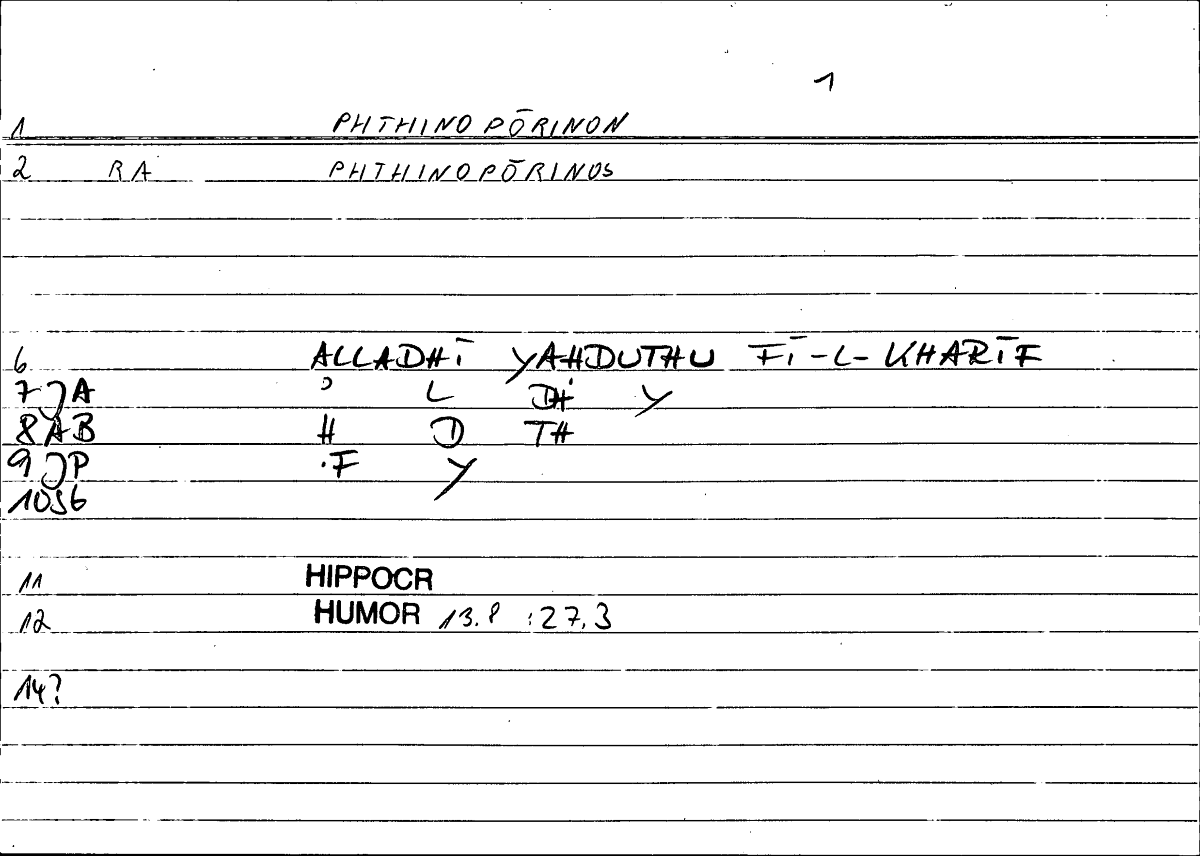 1
1 PHTHINOPŌRINON
2 RA PHTHINOPŌRINOS
6 ALLADHĪ YAḤDUTHU FĪ-L-KHARĪF
7 JA ʾ L DH Y
8 AB Ḥ D TH
9 JP .F Y
10 56
11 HIPPOCR
12 HUMOR 13.8 :27.3
14?